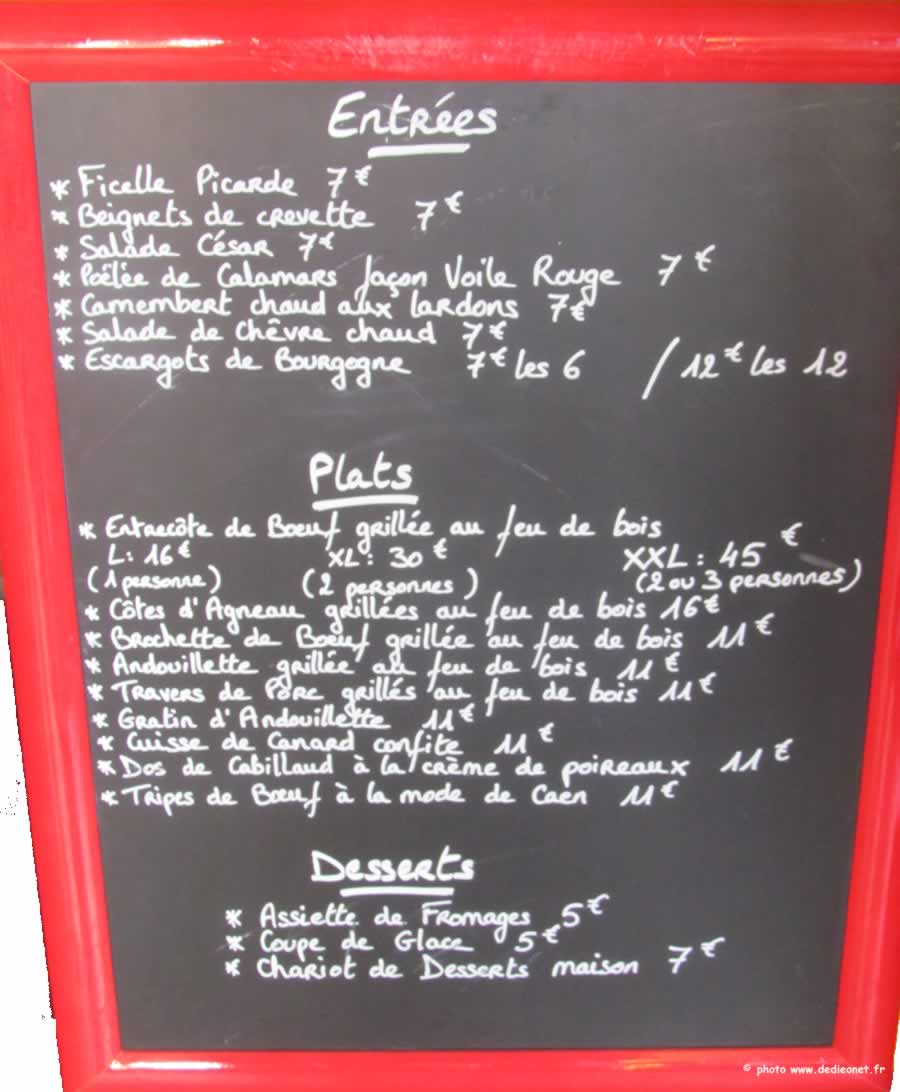 Entrées
* Ficelle Picarde 7€
* Beignets de crevette 7€
* Salade César 7€
* Poêlée de Calamars façon Voile Rouge 7€
* Camembert chaud aux lardons 7€
* Salade de Chêvre chaud 7€
* Escargots de Bourgogne 7€ les 6 / 12€ les 12
Plats
* Entrecôte de Bœuf grillée au feu de bois
L: 16€ XL: 30€ XXL: 45€
(1 personne) (2 personnes) (2 ou 3 personnes)
* Côtes d'Agneau grillées au feu de bois 16€
* Brochette de Bœuf grillée au feu de bois 11€
* Andouillette grillée au feu de bois 11€
* Travers de Porc grillés au feu de bois 11€
* Gratin d'Andouillette 11€
* Cuisse de Canard confite 11€
* Dos de Cabillaud à la crème de poireaux 11€
* Tripes de Bœuf à la mode de Caen 11€
Desserts
* Assiette de Fromages 5€
* Coupe de Glace 5€
* Chariot de Desserts maison 7€
© photo www.dedieonet.fr